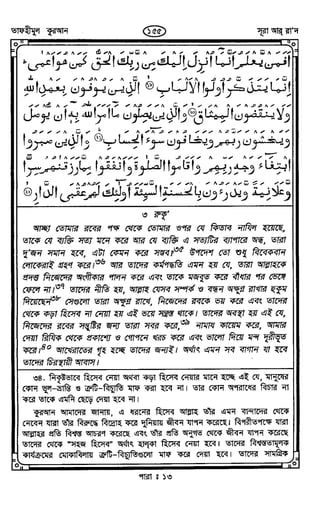 তাফহীমুল কুরআন
১৫৫
সূরা আর্ রা’দ
أَفَمَن يَعْلَمُ أَنَّمَا أُنزِلَ إِلَيْكَ مِن رَّبِّكَ الْحَقُّ كَمَنْ هُوَ أَعْمَى
إِنَّمَا يَتَذَكَّرُ أُولُوا الْأَلْبَابِ ﴿١٩﴾ الَّذِينَ يُوفُونَ بِعَهْدِ اللَّهِ
وَلَا يَنقُضُونَ الْمِيثَاقَ ﴿٢٠﴾ وَالَّذِينَ يَصِلُونَ مَا أَمَرَ اللَّهُ بِهِ أَن يُوصَلَ
وَيَخْشَوْنَ رَبَّهُمْ وَيَخَافُونَ سُوءَ الْحِسَابِ ﴿٢١﴾ وَالَّذِينَ صَبَرُوا
ابْتِغَاءَ وَجْهِ رَبِّهِمْ وَأَقَامُوا الصَّلَوٰةَ وَأَنفَقُوا مِمَّا رَزَقْنَاهُمْ سِرًّا
وَعَلَانِيَةً وَيَدْرَءُونَ بِالْحَسَنَةِ السَّيِّئَةَ أُولَٰئِكَ لَهُمْ عُقْبَى الدَّارِ ﴿٢٢﴾
৩ রুকূ’
আচ্ছা তোমার রবের পক্ষ থেকে তোমার ওপর যে কিতাব নাযিল হয়েছে,
তাকে যে ব্যক্তি সত্য মনে করে আর যে ব্যক্তি এ সত্যটির ব্যাপারে অন্ধ, তারা
দু’জন সমান হবে, এটা কেমন করে সম্ভব? উপদেশ তো শুধু বিবেকবান
লোকেরাই গ্রহণ করে। আর তাদের কর্মপদ্ধতি এমন হয় যে, তারা আল্লাহকে
প্রদত্ত নিজেদের অংগীকার পালন করে এবং তাকে মজবুত করে বাঁধার পর ভেঙ্গে
ফেলে না। তাদের নীতি হয়, আল্লাহ যেসব সম্পর্ক ও বন্ধন অক্ষুণ্ণ রাখার হুকুম
দিয়েছেন সেগুলো তারা অক্ষুণ্ণ রাখে, নিজেদের রবকে ভয় করে এবং তাদের
থেকে কড়া হিসেব না নেয়া হয় এই ভয়ে সন্ত্রস্ত থাকে। তাদের অবস্থা হয় এই যে,
নিজেদের রবের সন্তুষ্টির জন্য তারা সবর করে, নামায কায়েম করে, আমার
দেয়া রিযিক থেকে প্রকাশ্যে ও গোপনে খরচ করে এবং ভালো দিয়ে মন্দ দূরীভূত
করে। আখেরাতের গৃহ হচ্ছে তাদের জন্যই। অর্থাৎ এমন সব বাগান যা হবে
তাদের চিরস্থায়ী আবাস।
৩৪. নিকৃষ্টভাবে হিসেব নেয়া অথবা কড়া হিসেব নেয়ার মানে হচ্ছে এই যে, মানুষের
কোন ভুল-ভ্রান্তি ও ত্রুটি-বিচ্যুতি মাফ করা হবে না। তার কোন অপরাধের বিচার না
করে তাকে এমনি ছেড়ে দেয়া হবে না।
কুরআন আমাদের জানায়, এ ধরনের হিসেব আল্লাহ তাঁর এমন বান্দাদের থেকে
নেবেন যারা তাঁর বিরুদ্ধে বিদ্রোহ করে দুনিয়ায় জীবন যাপন করেছে। বিপরীতপক্ষে যারা
আল্লাহর প্রতি বিশ্বস্ত আচরণ করেছে এবং তাঁর প্রতি অনুগত থেকে জীবন যাপন করেছে
তাদের থেকে “সহজ হিসেব” অর্থাৎ হালকা হিসেব নেয়া হবে। তাদের বিশ্বস্ততামূলক
কার্যক্রমের মোকাবিলায় ত্রুটি-বিচ্যুতিগুলো মাফ করে দেয়া হবে। তাদের সামগ্রিক
পারা ঃ ১৩